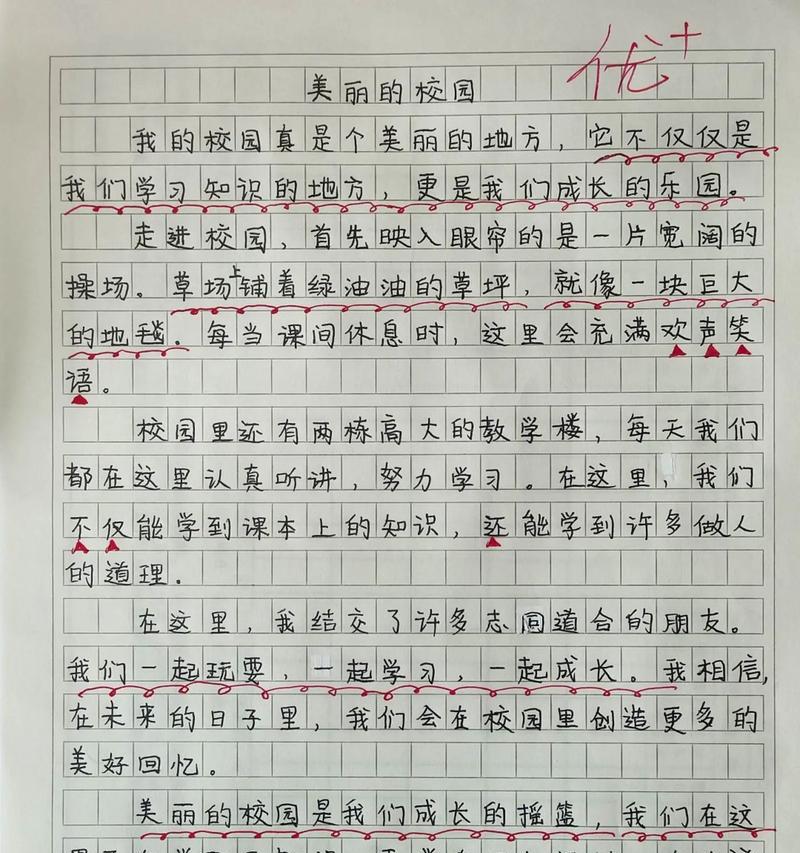 优+
美丽的校园
我的校园真是个美丽的地方，它不仅仅是
我们学习知识的地方，更是我们成长的乐园。
走进校园，首先映入眼帘的是一片宽阔的
操场。草场上铺着绿油油的草坪，就像一块巨大
的地毯。每当课间休息时，这里会充满欢声笑
语。
校园里还有两栋高大的教学楼，每天我们
都在这里认真听讲，努力学习。在这里，我们
不仅能学到课本上的知识，还能学到许多做人
的道理.
在这里，我结交了许多志同道合的朋友。
我们一起玩耍，一起学习，一起成长。我相信，
在未来的日子里，我们会在校园里创造更多的
美好回忆。
美丽的校园是我们成长的摇篮，我们在这